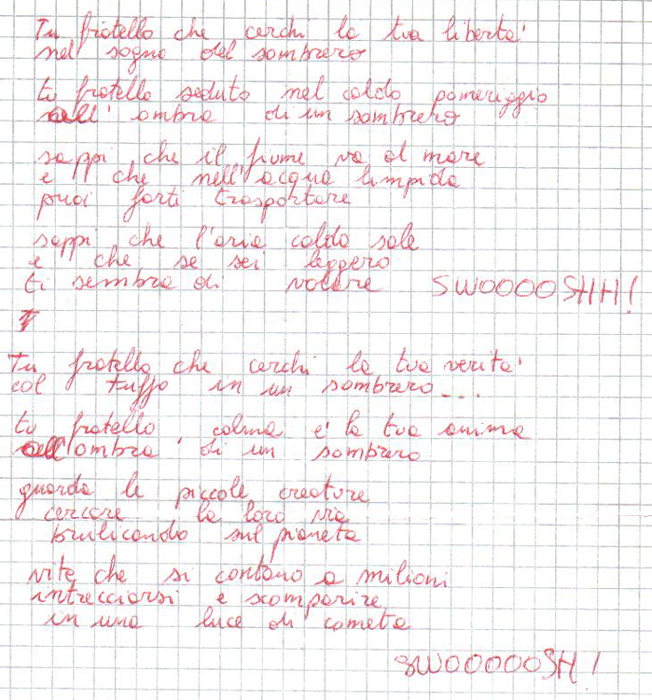 Tu fratello che cerchi la tua liberta'
nel sogno del sombrero
tu fratello seduto nel caldo pomeriggio
all'ombra di un sombrero
sappi che il fiume va al mare
e che nell'acqua limpida
puoi farti trasportare
sappi che l'aria calda sale
e che se sei leggero
ti sembra di volare SWOOOOSHH!
T
Tu fratello che cerchi la tua verita'
col tuffo in un sombrero...
tu fratello, calma e' la tua anima
all'ombra di un sombrero
guarda le piccole creature
cercare la loro via
brulicando sul pianeta
vite che si contano a milioni
intrecciarsi e scomparire
in una luce di cometa
SWOOOOOSH!